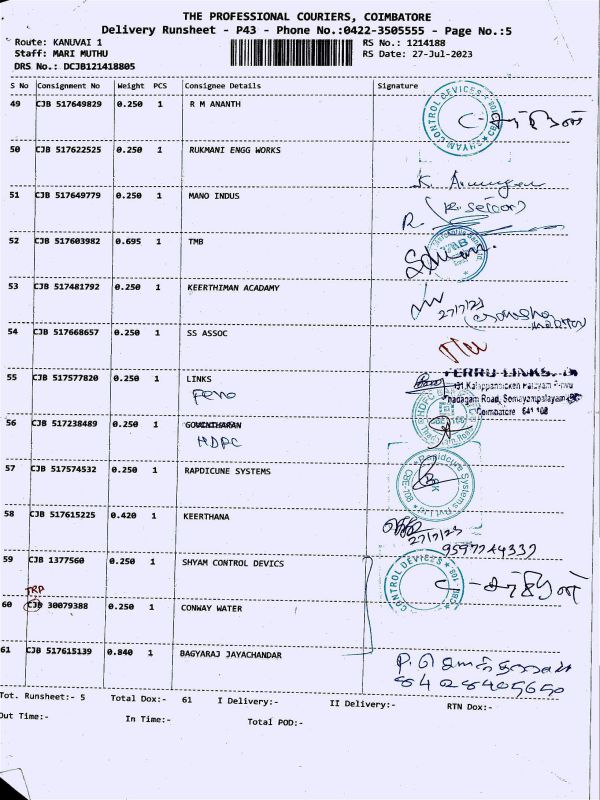 THE PROFESSIONAL COURIERS, COIMBATORE
Delivery Runsheet - P43 - Phone No.:0422-3505555 - Page No.:5
Route: KANUVAI 1 RS No.: 1214188
Staff: MARI MUTHU RS Date: 27-Jul-2023
DRS No.: DCJB121418805
S No Consignment No Weight PCS Consignee Details Signature
49 CJB 517649829 0.250 1 R M ANANTH
SHYAM CONTROL DEVICES * CBE - 108 *
50 CJB 517622525 0.250 1 RUKMANI ENGG WORKS
51 CJB 517649779 0.250 1 MANO INDUS
52 CJB 517603982 0.695 1 TMB
53 CJB 517481792 0.250 1 KEERTHIMAN ACADAMY
27/7/23
54 CJB 517668657 0.250 1 SS ASSOC
55 CJB 517577820 0.250 1 LINKS
Road, Somayampalayam
Coimbatore 641 108
56 CJB 517238489 0.250 1 GOVINTHARAN
HDPC
57 CJB 517574532 0.250 1 RAPDICURE SYSTEMS
Rapidcure Systems Pvt Ltd
58 CJB 517615225 0.420 1 KEERTHANA
27/7/23
59 CJB 1377560 0.250 1 SHYAM CONTROL DEVICS
CONTROL DEVICES * CBE - 108 *
TRP
60 CJB 30079388 0.250 1 CONWAY WATER
61 CJB 517615139 0.840 1 BAGYARAJ JAYACHANDAR
8428405650
Tot. Runsheet:- 5 Total Dox:- 61 I Delivery:- II Delivery:- RTN Dox:-
Out Time:- In Time:- Total POD:-